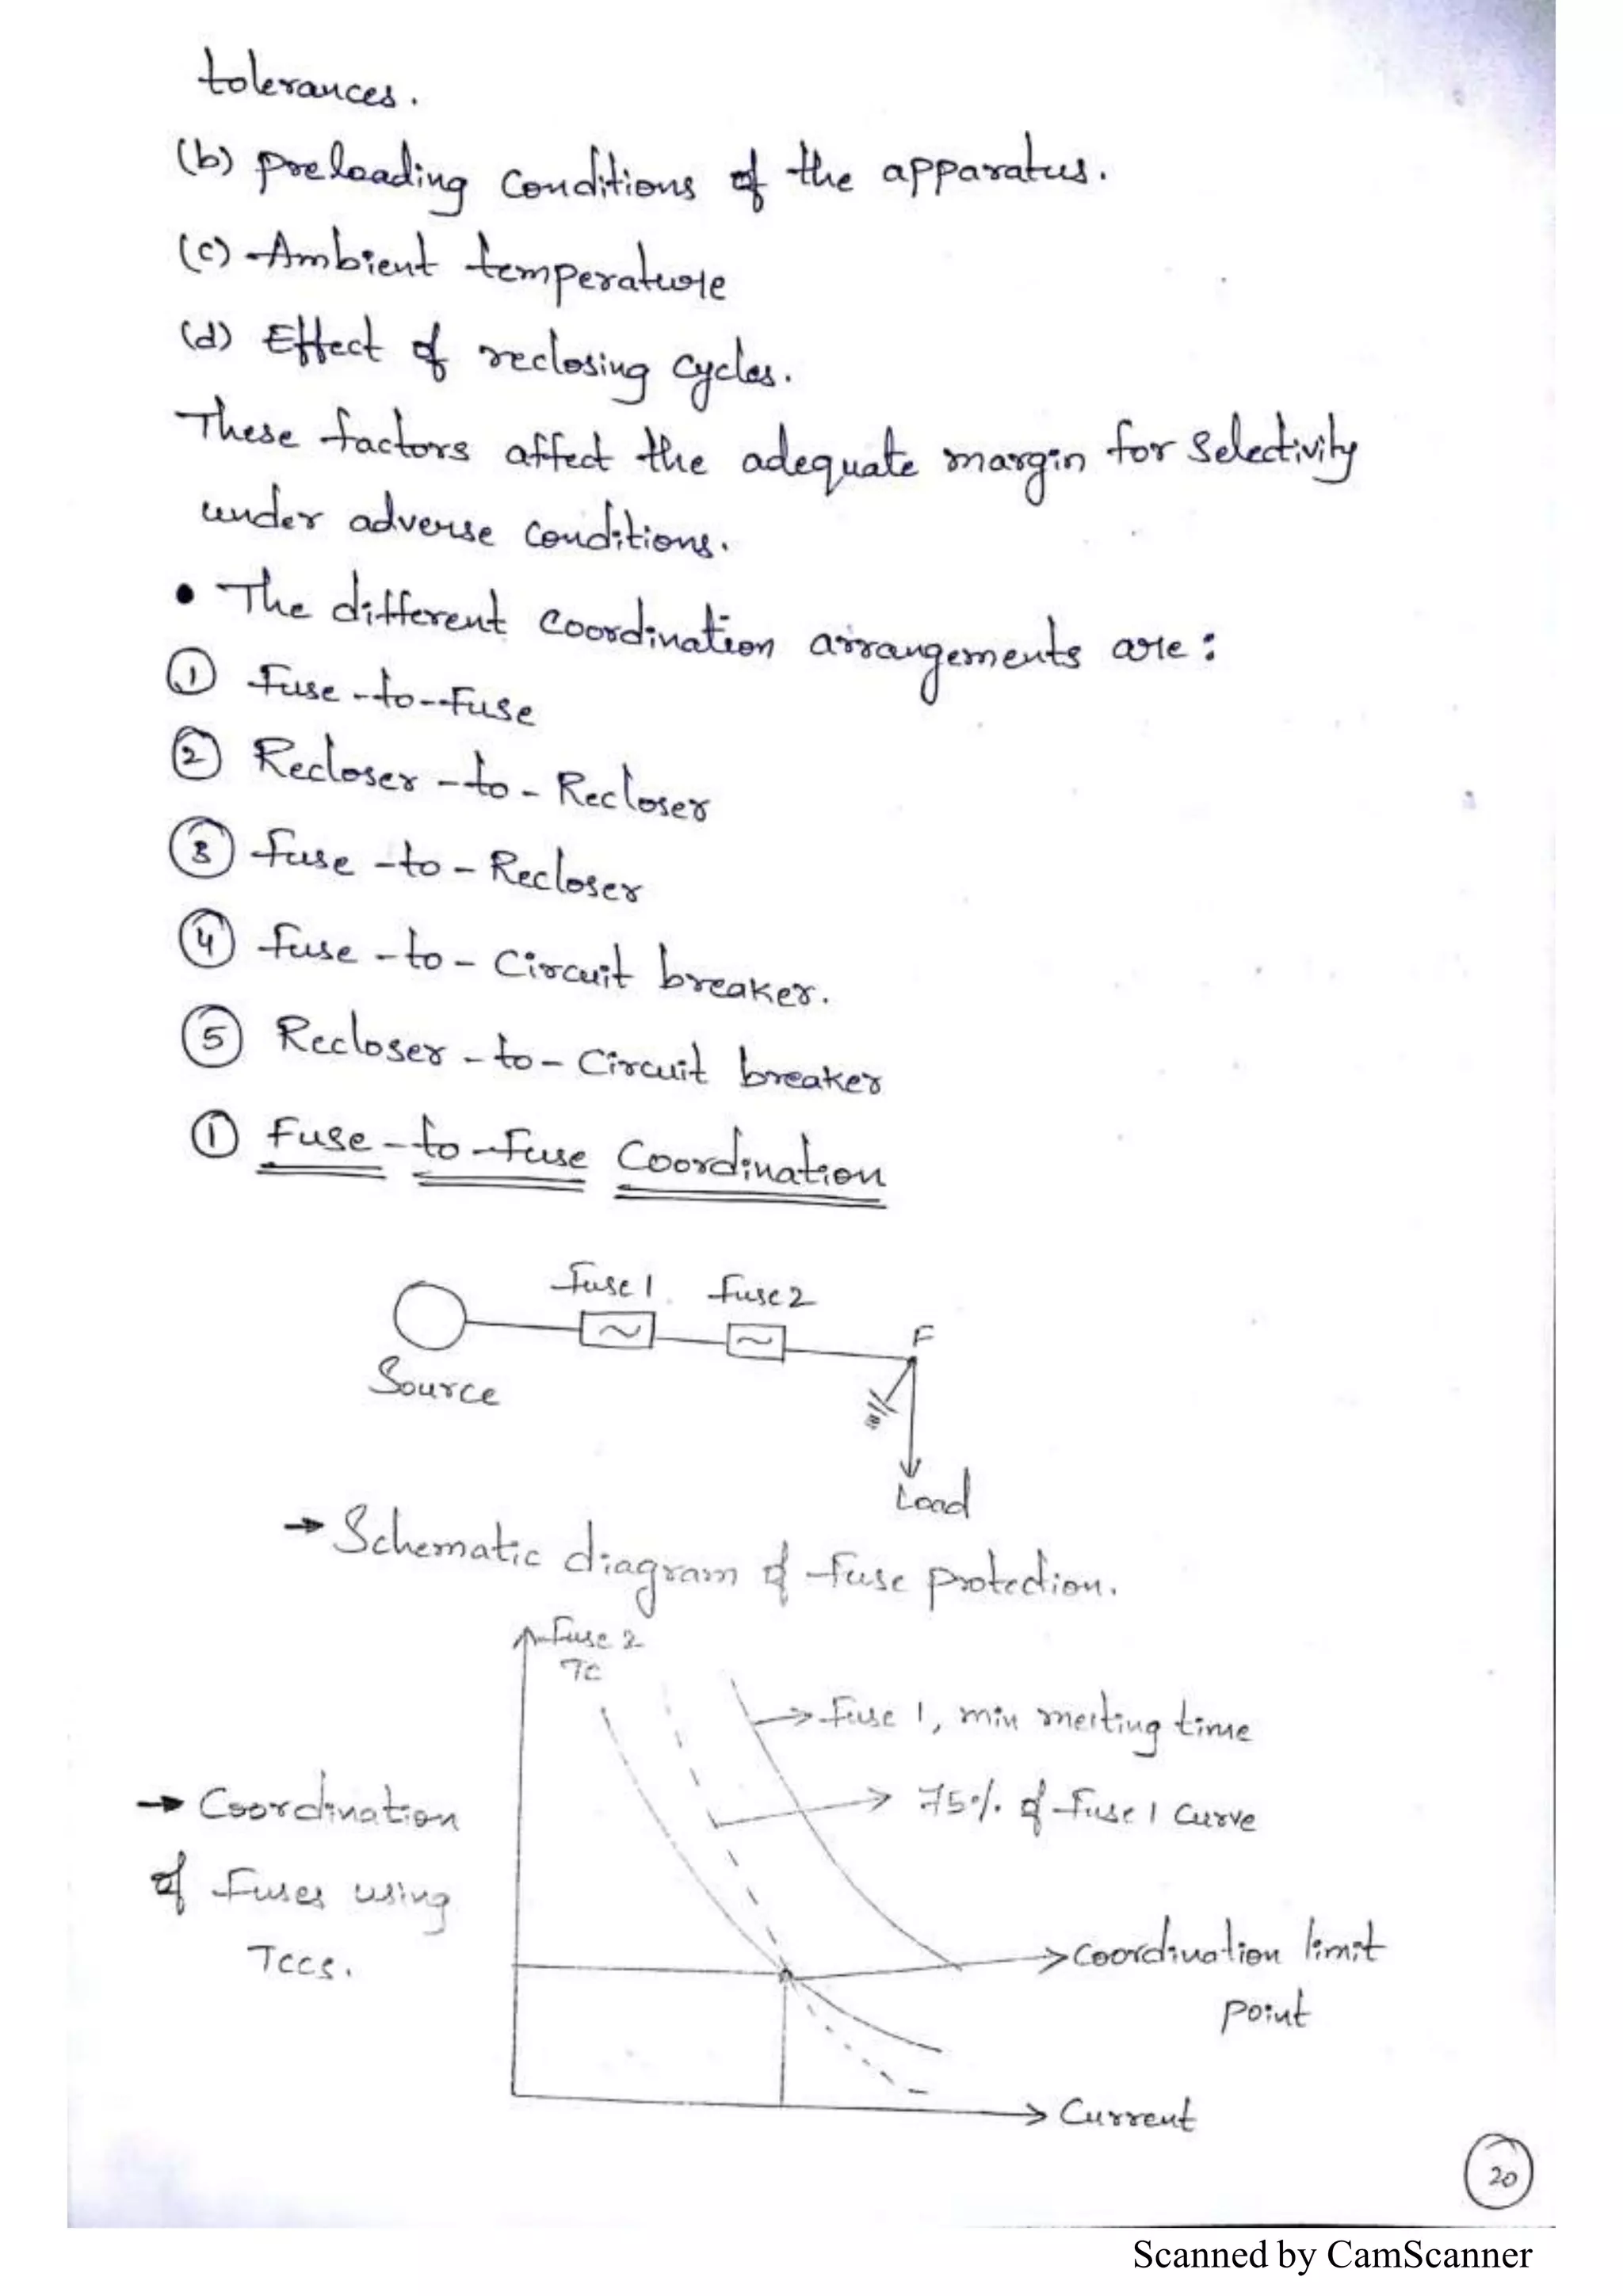 tolerances.
(b) preloading conditions of the apparatus.
(c) Ambient temperature
(d) Effect of reclosing cycles.
These factors affect the adequate margin for selectivity
under adverse conditions.
• The different coordination arrangements are :
① Fuse-to-Fuse
② Recloser-to-Recloser
③ Fuse-to-Recloser
④ Fuse-to-Circuit breaker.
⑤ Recloser-to-Circuit breaker
① Fuse-to-Fuse Coordination
Fuse 1 Fuse 2
F
Source
Load
→ Schematic diagram of Fuse protection.
Fuse 2
TC
→ Fuse 1, min melting time
→ 75% of Fuse 1 Curve
→ Coordination
of Fuses using
TCCS.
→ Coordination limit
point
→ Current
20
Scanned by CamScanner